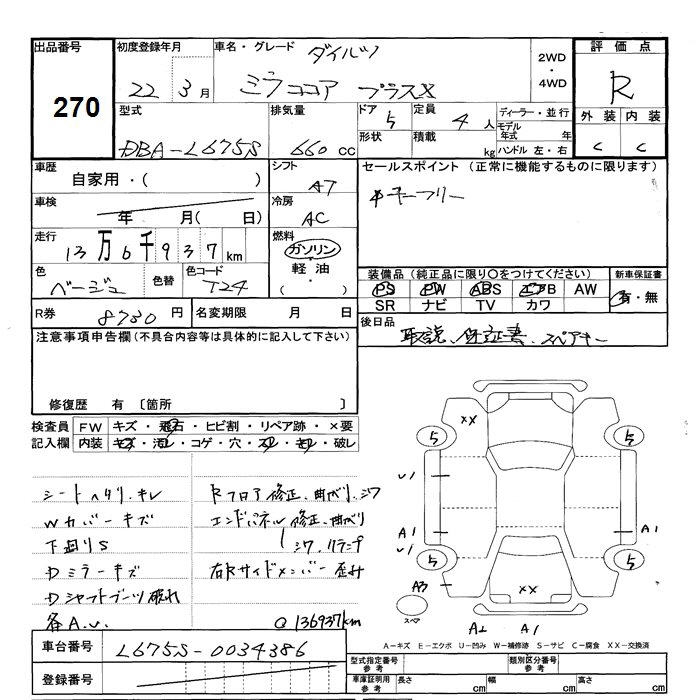 出品番号
270
初度登録年月
22 年 3月
車名・グレード ダイハツ
ミラココア プラスX
2WD
・
4WD
評価点
R
外装 内装
C C
型式
DBA-L675S
排気量
660 cc
ドア 5
形状
定員 4 人
積載 kg
ディーラー・並行
モデル年式 年
ハンドル 左・右
車歴
自家用・( )
シフト
AT
車検
年 月( 日)
冷房
AC
走行
13万6千937km
燃料
ガソリン
軽油・
( )
色
ベージュ
色替
色コード
T24
R券 8730円
名変期限 月 日
セールスポイント(正常に機能するものに限ります)
キーフリー
装備品(純正品に限り〇をつけてください)
PS PW ABS エアB AW
SR ナビ TV カワ
新車保証書
有・無
後日品
取説、保証書、スペアキー
注意事項申告欄(不具合内容等は具体的に記入して下さい)
修復歴 有〔箇所 〕
検査員記入欄
FW キズ・飛石・ヒビ割・リペア跡・×要
内装 キズ・汚レ・コゲ・穴・スレ・キレ・破レ
シートヘタリ、キレ
Wカバーキズ
下廻りS
Dミラーキズ
Dシャフトブーツ破れ
各A.U.
Rフロア修正、曲がり、シワ
エンドパネル修正、曲がり
シワ、クランプ
右Rサイドメンバー歪み
Q 136937km
XX
5
5
U1
A1
U1
A1
5
5
A3
XX
スペア
A2 A1
A-キズ E-エクボ U-凹み W-補修跡 S-サビ C-腐食 XX-交換済
車台番号
L675S-0034386
登録番号
型式指定番号
参考
類別区分番号
参考
車庫証明用
参考
長さ cm
幅 cm
高さ cm